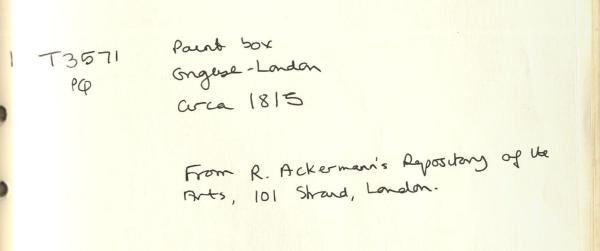 1 T3571 Paint box
PQ English - London
circa 1815
From R. Ackermann's Repository of the
Arts, 101 Strand, London.